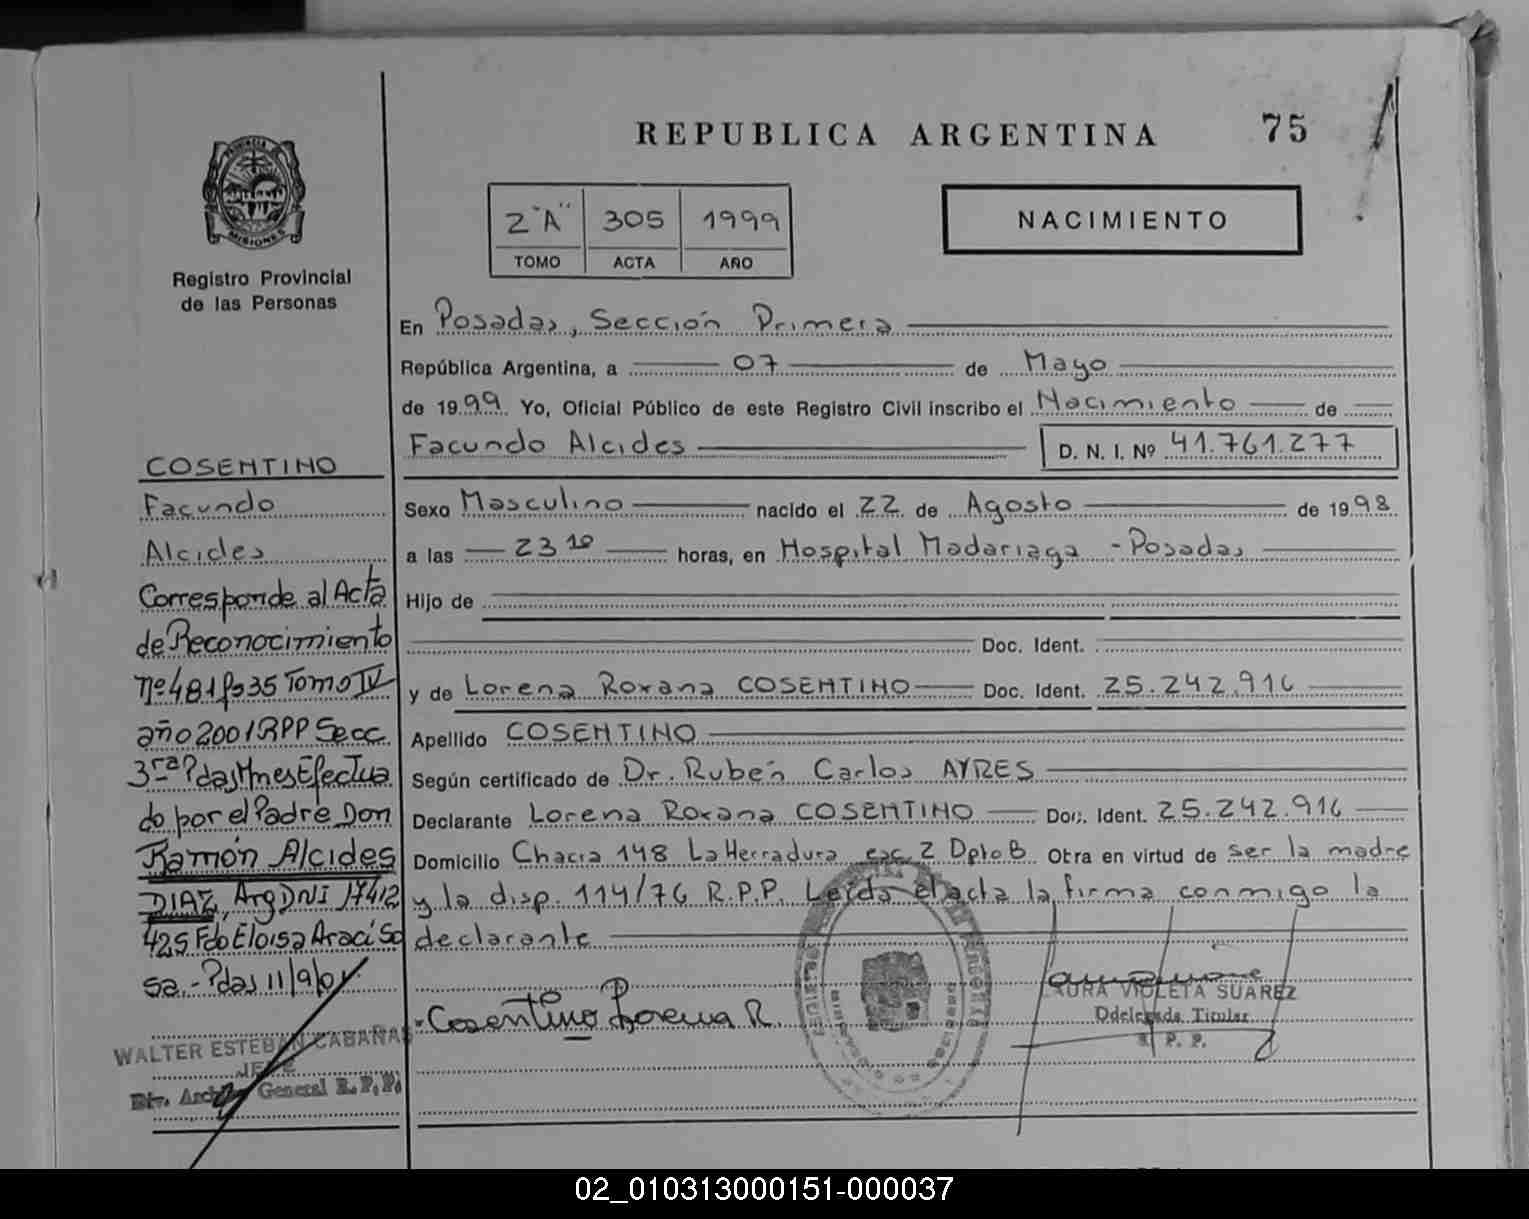 REPUBLICA ARGENTINA 75
PROVINCIA DE
MISIONES
Registro Provincial
de las Personas
2 "A" 305 1999
TOMO ACTA AÑO
NACIMIENTO
En Posadas, Sección Primera
República Argentina, a 07 de Mayo
de 1999 Yo, Oficial Público de este Registro Civil inscribo el Nacimiento de
Facundo Alcides D. N. I. Nº 41.761.277
Sexo Masculino nacido el 22 de Agosto de 1998
a las 23 10 horas, en Hospital Madariaga - Posadas
Hijo de
Doc. Ident.
y de Lorena Roxana COSENTINO Doc. Ident. 25.242.916
Apellido COSENTINO
Según certificado de Dr. Rubén Carlos AYRES
Declarante Lorena Roxana COSENTINO Doc. Ident. 25.242.916
Domicilio Chacra 148 La Herradura esc 2 Dpto B Otra en virtud de ser la madre
y la disp. 114/76 R.P.P. Leída el acta la firma conmigo la
declarante
Cosentino Lorena R.
LAURA VIOLETA SUAREZ
Ddelegada Titular
R. P. P.
COSENTINO
Facundo
Alcides
Corresponde al Acta
de Reconocimiento
nº 481 fº 35 Tomo IV
año 2001 RPP Secc
3ra Pdas Mnes Efectua
do por el Padre Don
Ramón Alcides
DIAZ, Arg DNI 17412
425 Fdo Eloisa Araci So
sa.- Pdas 11/9/01
WALTER ESTEBAN CABAÑAS
JEFE
Div. Archivo General R.P.P.
02_010313000151-000037